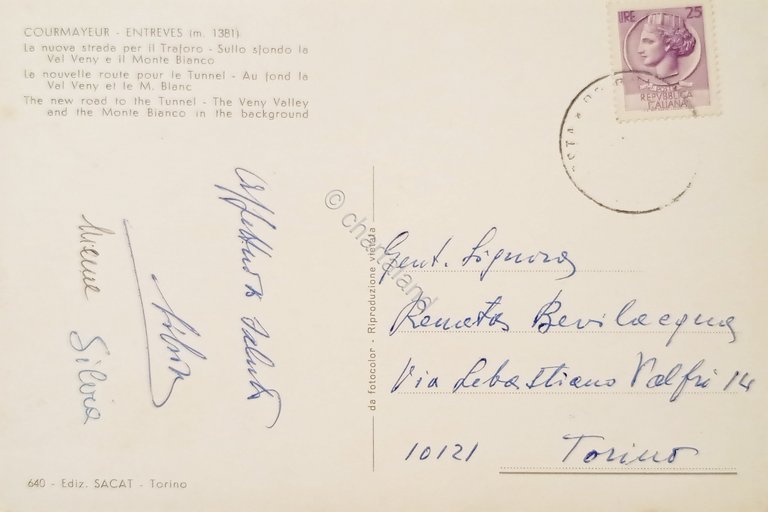 COURMAYEUR - ENTREVES (m. 1381)
La nuova strada per il Traforo - Sullo sfondo la
Val Veny e il Monte Bianco
La nouvelle route pour le Tunnel - Au fond la
Val Veny et le M. Blanc
The new road to the Tunnel - The Veny Valley
and the Monte Bianco in the background
LIRE 25
REPVBBLICA
ITALIANA
Affettuosi saluti
Silvia
da fotocolor - Riproduzione vietata
© chartaland
Gent. Signora
Renata Bevilacqua
Via Sebastiano Valfrè 14
10121 Torino
640 - Ediz. SACAT - Torino